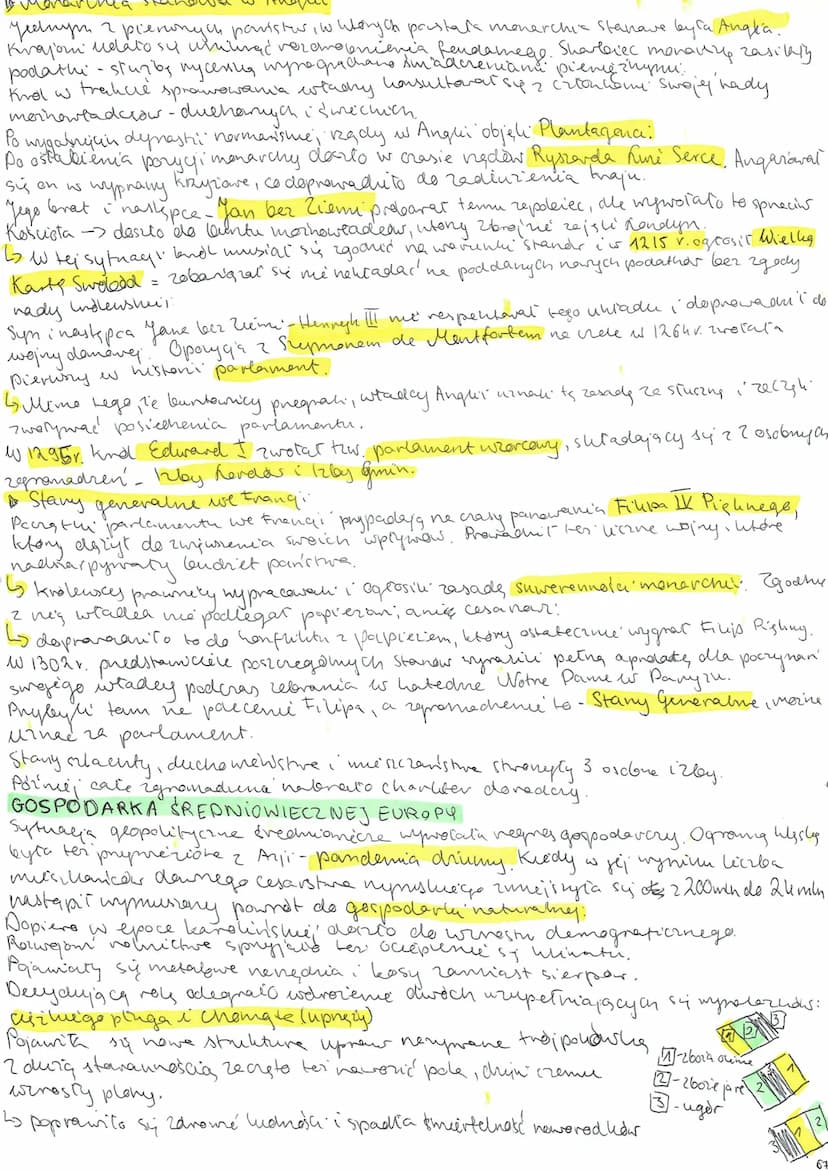 Monarchia stanowa w Anglii
Jednym z pierwszych państw, w których powstała monarchia stanowa była Anglia.
Krajowi udało się uniknąć rozdrobnienia feudalnego. Skarbiec monarchy zasilały
podatki - służbę rycerską wynagradzano świadczeniami pieniężnymi.
Król w trakcie sprawowania władzy konsultował się z członkami swojej rady
możnowładców - duchownych i świeckich.
Po wygaśnięciu dynastii normańskiej, rządy w Anglii objęli Plantageneci.
Do osłabienia pozycji monarchy doszło w czasie rządów Ryszarda Lwie Serce. Angażował
się on w wyprawy krzyżowe, co doprowadziło do zadłużenia kraju.
Jego brat i następca - Jan bez Ziemi próbował temu zapobiec, ale wywołało to sprzeciw
Kościoła -> doszło do buntu możnowładców, którzy zbrojnie zajęli Londyn.
↳ W tej sytuacji król musiał się zgodzić na warunki stanów i w 1215 r. ogłosił Wielką
Kartę Swobód = zobowiązał się nie nakładać na poddanych nowych podatków bez zgody
rady królewskiej.
Syn i następca Jana bez Ziemi - Henryk III nie respektował tego układu i doprowadził do
wojny domowej. Opozycja z Szymonem de Montfortem na czele w 1264r. zwołała
pierwszy w historii parlament.
↳ Mimo tego, że buntownicy przegrali, władcy Anglii uznali tę zasadę za słuszną i zaczęli
zwoływać posiedzenia parlamentu.
W 1295r. król Edward I zwołał tzw. parlament wzorcowy, składający się z 2 osobnych
zgromadzeń - Izby Lordów i Izby Gmin.
Stany generalne we Francji
Początki parlamentu we Francji przypadają na czasy panowania Filipa IV Pięknego,
który dążył do zwiększenia swoich wpływów. Prowadził też liczne wojny, które
nadszarpywały budżet państwa.
↳ Królewscy prawnicy wypracowali i ogłosili zasadę suwerenności monarchii. Zgodnie
z nią władca nie podlegał papieżowi, ani cesarzowi.
↳ doprowadziło to do konfliktu z papieżem, który ostatecznie wygrał Filip Piękny.
W 1302r. przedstawiciele poszczególnych stanów wyrazili pełną aprobatę dla poczynań
swojego władcy podczas zebrania w katedrze Notre Dame w Paryżu.
Przybyli tam na polecenie Filipa, a zgromadzenie to - Stany Generalne, można
uznać za parlament.
Stany szlachty, duchowieństwa i mieszczaństwa stworzyły 3 osobne izby.
Później całe zgromadzenie nabrało charakter doradczy.
GOSPODARKA ŚREDNIOWIECZNEJ EUROPY
Sytuacja geopolityczna średniowiecza wywołała regres gospodarczy. Ogromną klęską
była też przywieziona z Azji - pandemia dżumy. Kiedy w jej wyniku liczba
mieszkańców dawnego cesarstwa rzymskiego zmniejszyła się z 200mln do 24 mln
nastąpił wymuszony powrót do gospodarki naturalnej.
Dopiero w epoce karolińskiej doszło do wzrostu demograficznego.
Rozwojowi rolnictwa sprzyjało też ocieplenie się klimatu.
Pojawiały się metalowe narzędzia i kosy zamiast sierpów.
Decydującą rolę odegrało wdrożenie dwóch uzupełniających się wynalazków:
ciężkiego pługa i chomąta (uprzęży)
Pojawiła się nowa struktura upraw nazywana trójpolówką
Z dużą starannością zaczęto też nawozić pola, dzięki czemu
wzrosły plony.
↳ poprawiło się zdrowie ludności i spadła śmiertelność noworodków
1 2 3
1 - zboża ozime
2 - zboże jare
3 - ugór
2 3 1
3 1 2
67